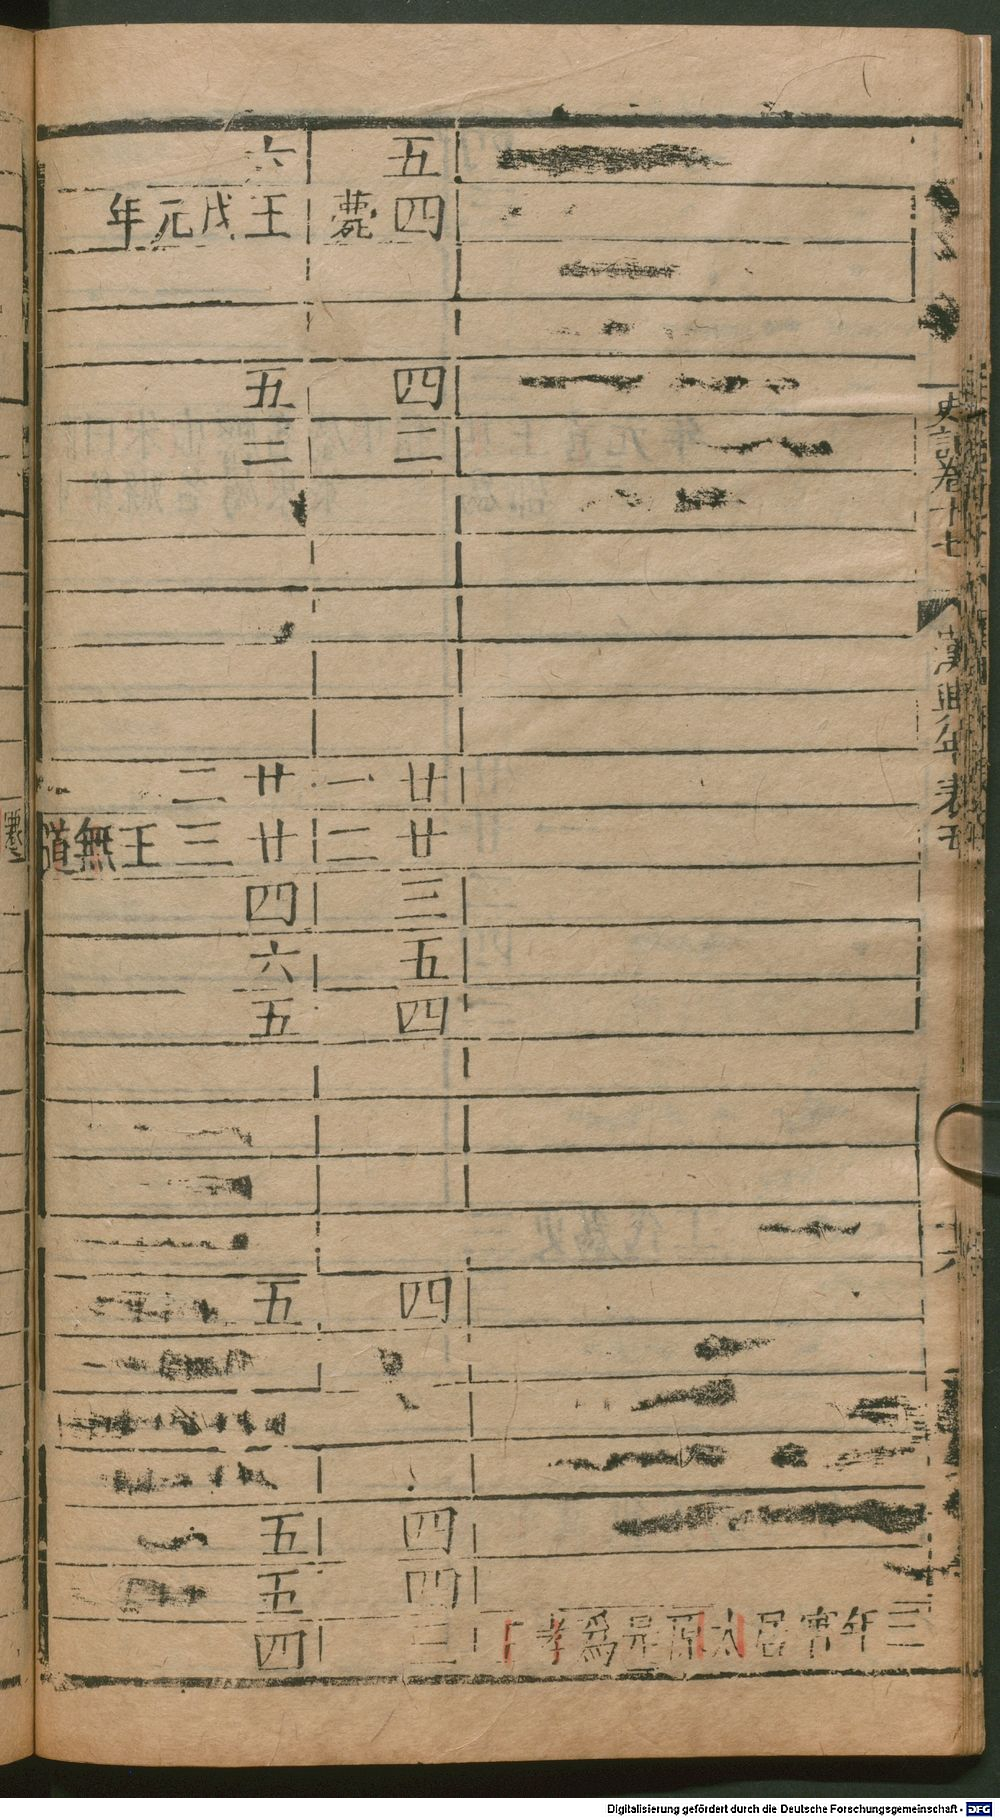 史記卷十七
漢興年表五
十六
三年實居太原是爲孝王
五
四薨
四
二
廿一
廿二
三
五
四
四
四
四
三
六
王戊元年
五
三
廿二
廿三王無道
四
六
五
五
五
五
四
Digitalisierung gefördert durch die Deutsche Forschungsgemeinschaft - DFG